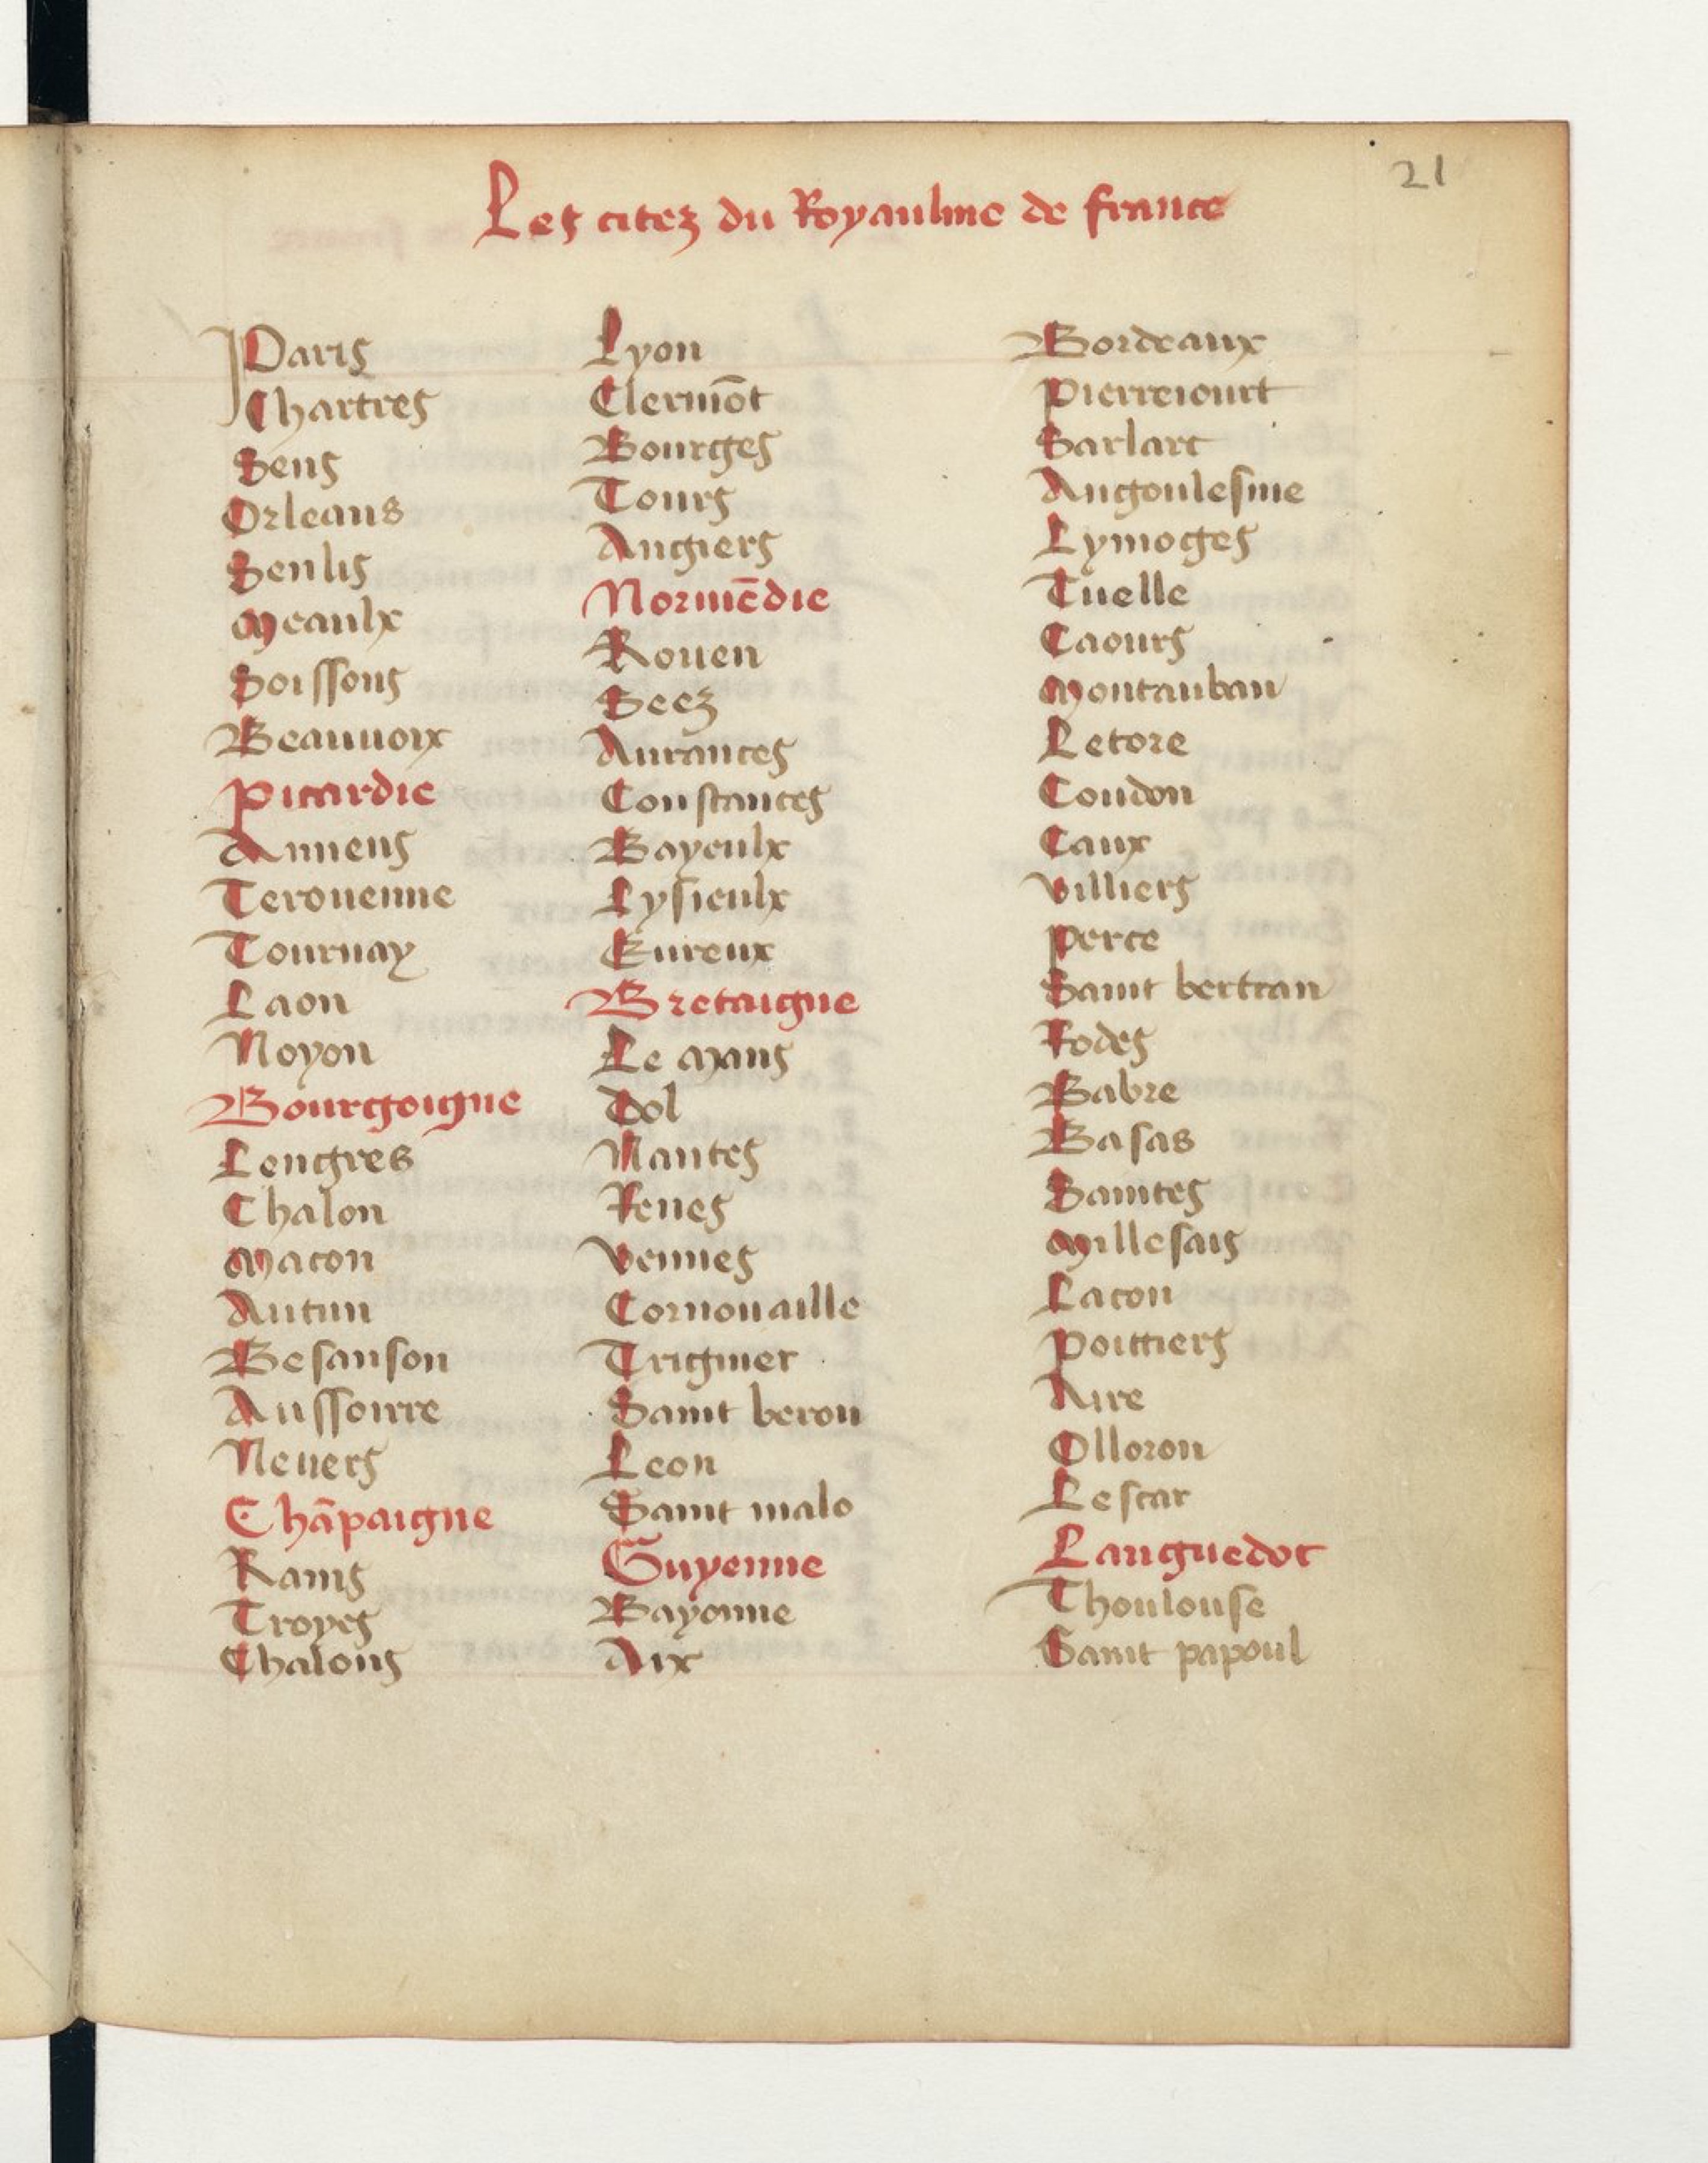 21
Les citez du Royaulme de france
Paris
Chartres
Sens
Orleans
Senlis
Meaulx
Soissons
Beauuoix
Picardie
Amiens
Terouenne
Tournay
Laon
Noyon
Bourgoigne
Lengres
Chalon
Macon
Autun
Besanson
Aussourre
Neuers
Chāpaigne
Rains
Troyes
Chalons
Lyon
Clermōt
Bourges
Tours
Angiers
Normēdie
Rouen
Seez
Aurances
Constances
Bayeulx
Lysieulx
Eureux
Bretaigne
Le Mans
Dol
Nantes
Renes
Vennes
Cornouaille
Triguier
Saint berou
Leon
Saint malo
Guyenne
Bayonne
Aix
Bordeaux
Pierrecourt
Sarlart
Angoulesme
Lymoges
Tuelle
Caours
Montauban
Letore
Condon
Caux
Villiers
Perce
Saint bertran
Rodes
Babre
Basas
Saintes
Millesais
Lacon
Poittiers
Aire
Olloron
Lescar
Languedoc
Thoulouse
Saint papoul